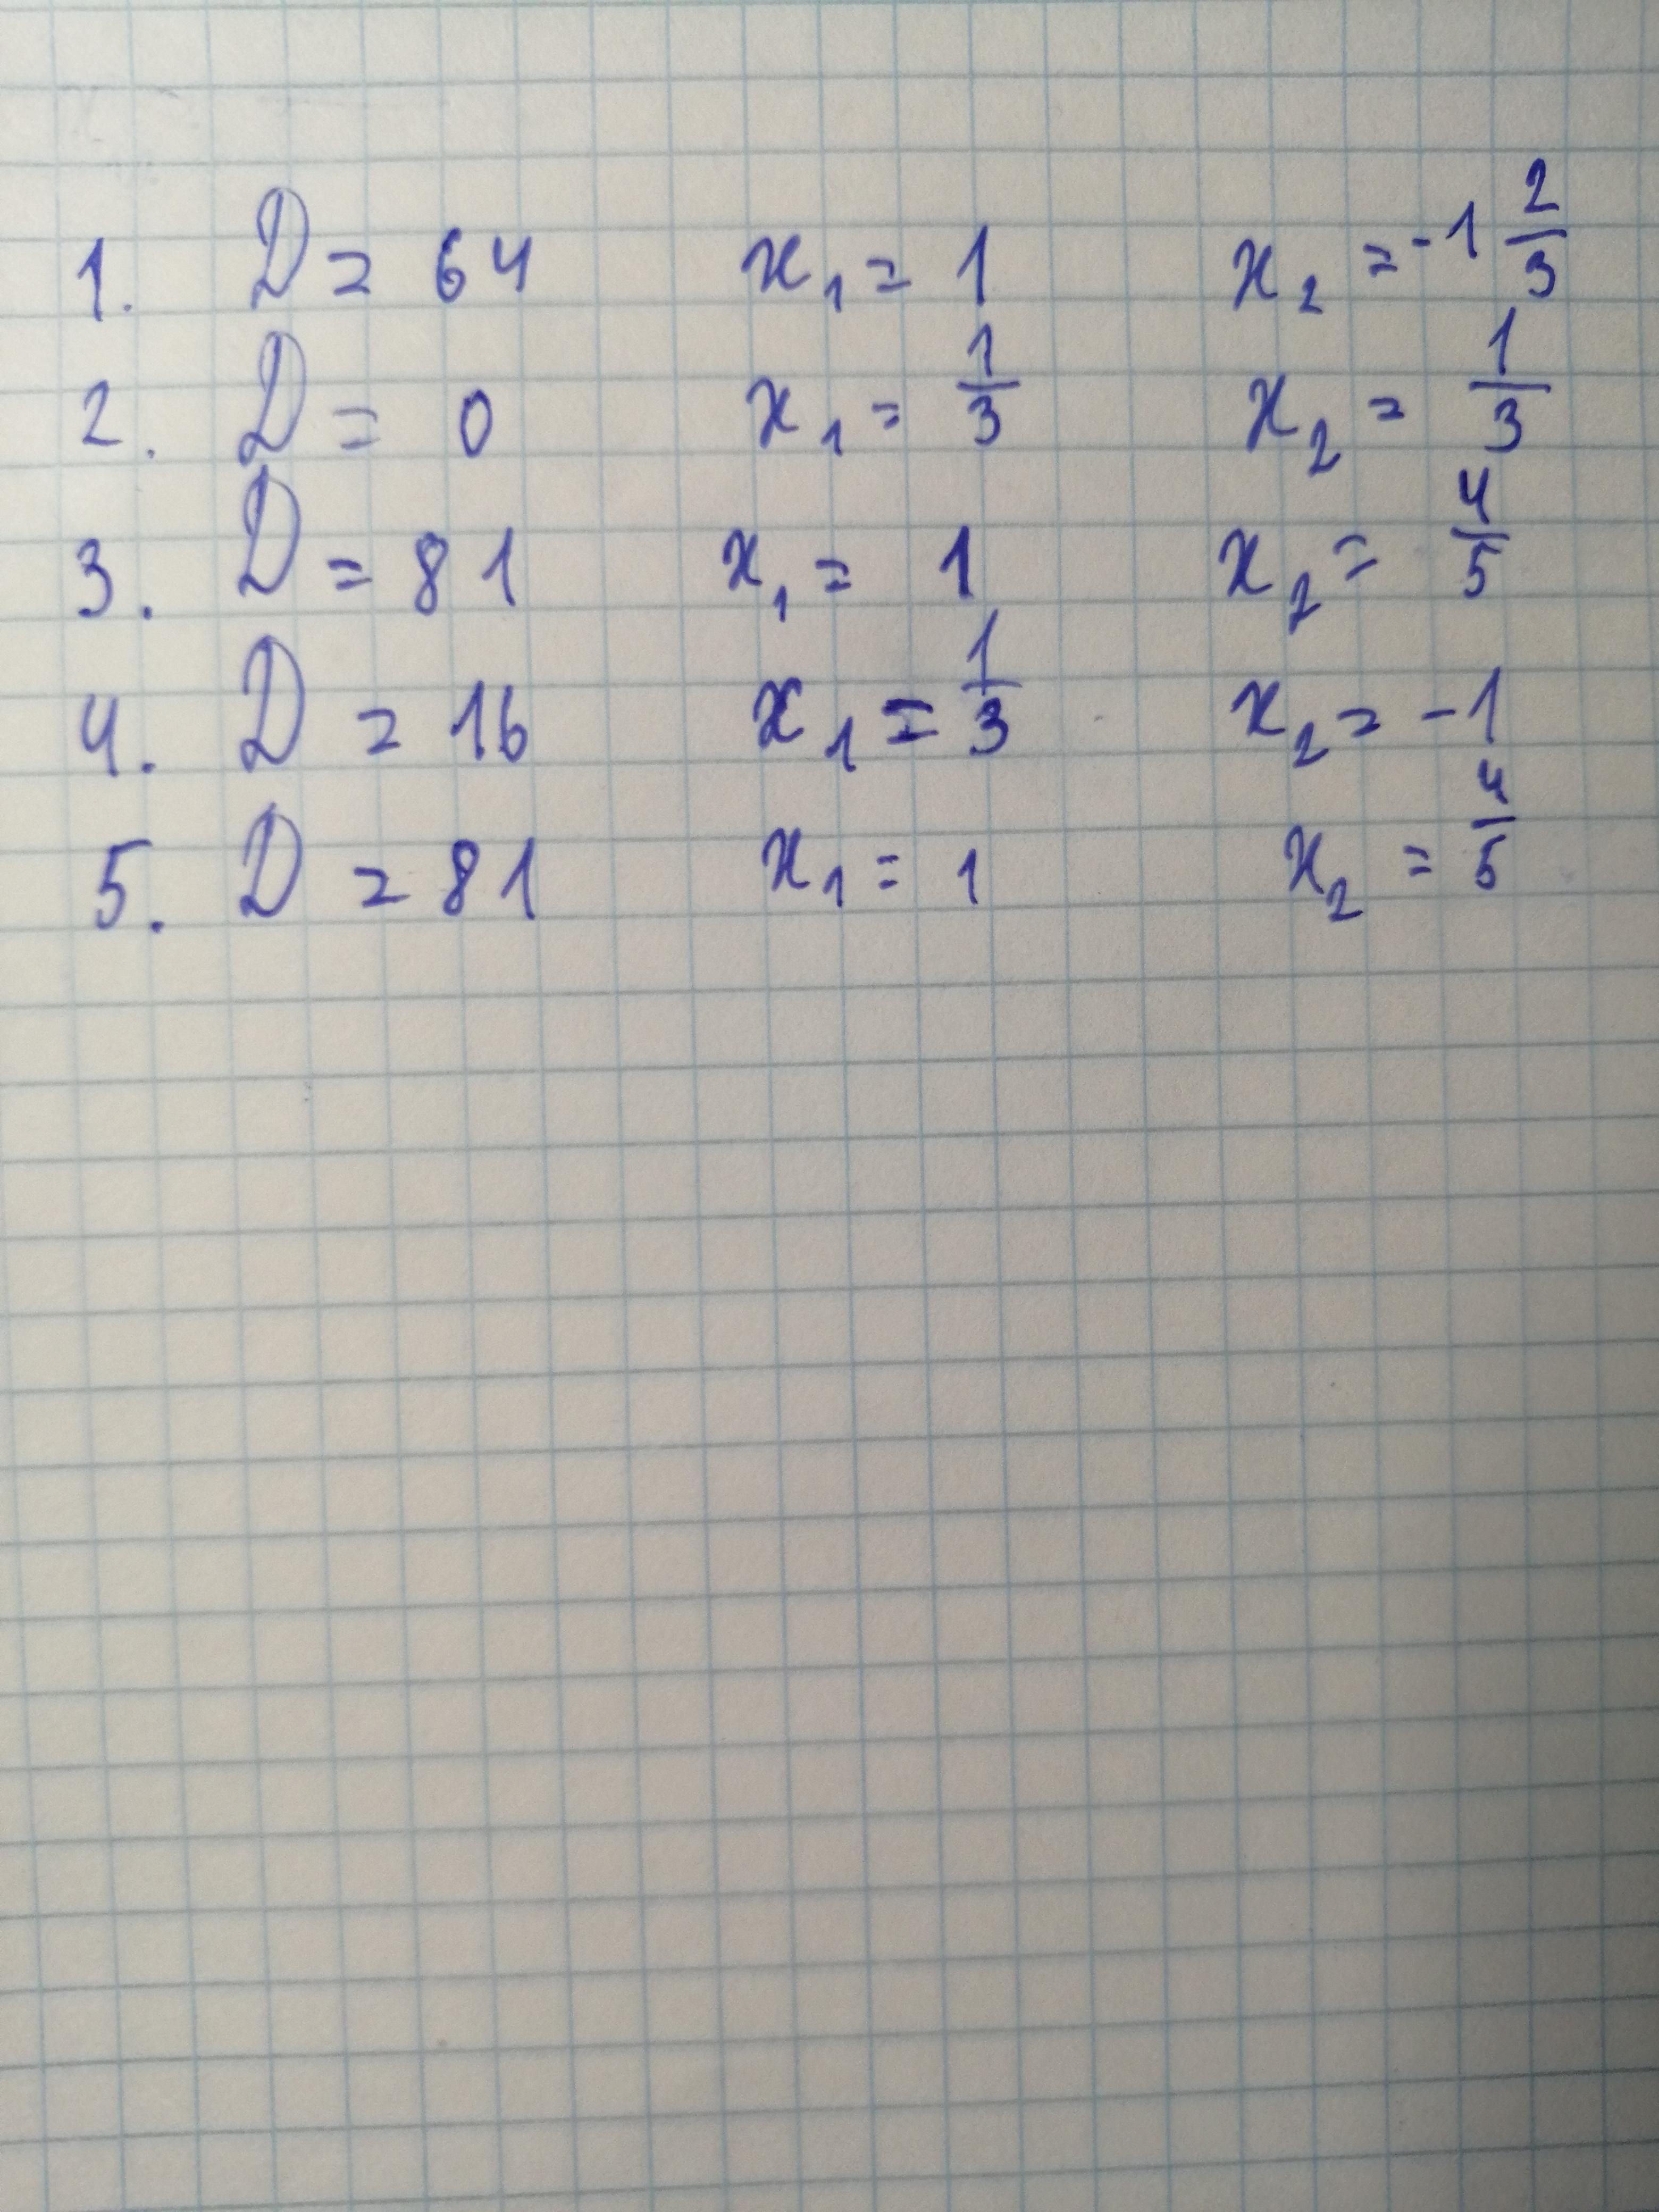 1. D = 64 x₁ = 1 x₂ = -1 2/3
2. D = 0 x₁ = 1/3 x₂ = 1/3
3. D = 81 x₁ = 1 x₂ = 4/5
4. D = 16 x₁ = 1/3 x₂ = -1
5. D = 81 x₁ = 1 x₂ = 4/5